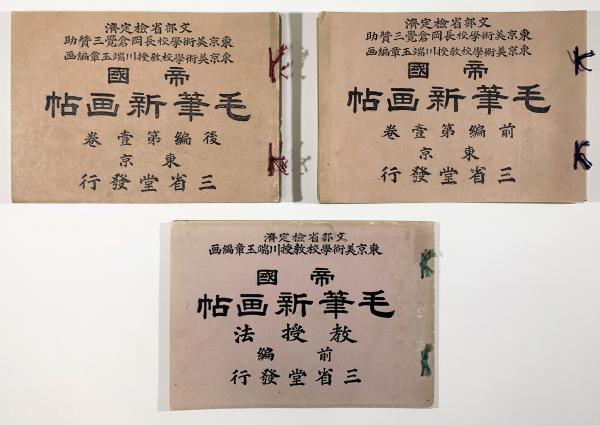 文部省檢定濟
東京美術學校長岡倉覺三賛助
東京美術學校教授川端玉章編画
帝國
毛筆新画帖
前編第壹卷
東京
三省堂發行
文部省檢定濟
東京美術學校長岡倉覺三賛助
東京美術學校教授川端玉章編画
帝國
毛筆新画帖
後編第壹卷
東京
三省堂發行
文部省檢定濟
東京美術學校教授川端玉章編画
帝國
毛筆新画帖
教授法
前編
三省堂發行